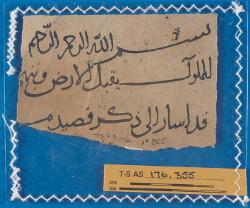 بسم الله الرحمن الرحيم
المملوك يقبل الارض وينهي
قد اسار الى ذكر قصيد
T-S AS 176.355
cm